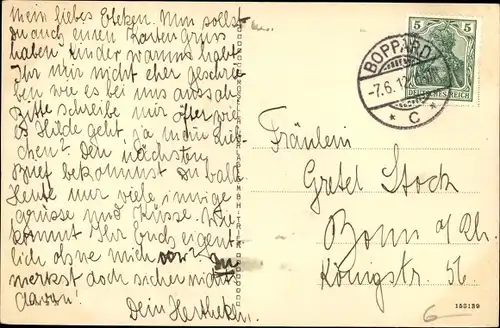 Mein liebes Eteken. Nun sollst
du auch einen Kartengruss
haben. Kinder warum habt
Ihr mir nicht eher geschrie-
ben wie es bei uns aussah.
Bitte schreibe mir öfter wie
es Hilde geht, ja mein Lieb-
chen? Den nächsten
Brief bekommst du bald
Heute nur viele, innige
Grüsse und Küsse. Wie
kommt Ihr Euch eigent-
lich ohne mich vor? Du
merkst doch sicher nichts
davon!
Dein Hertheken.
BOPPARD
-7.6.1
* C *
5 5
DEUTSCHES REICH
Fräulein
Gretel Stock
Bonn a/Rh.
Königstr. 56
153139
6